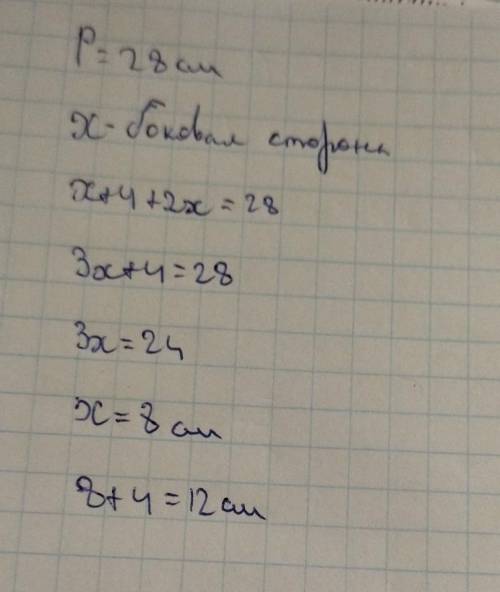 P = 28 см
x - боковая сторона
x+4+2x=28
3x+4=28
3x=24
x=8 см
8+4=12 см